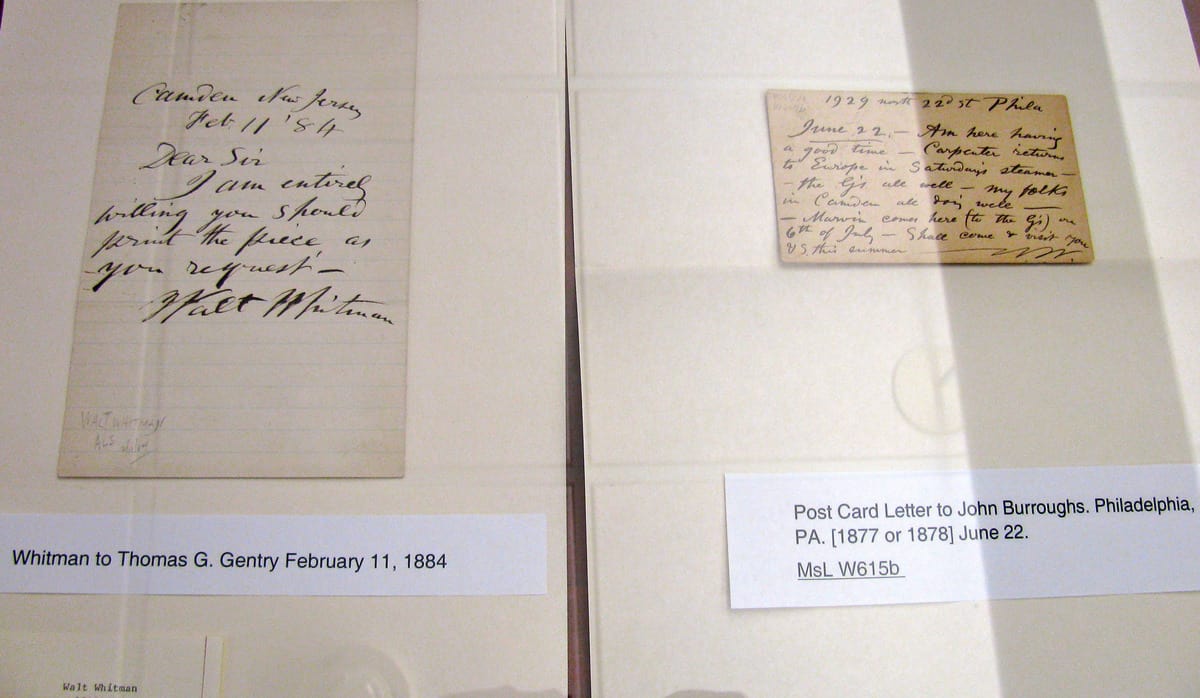 Camden New Jersey
Feb. 11 '84
Dear Sir
I am entirely
willing you should
print the piece as
you request —
Walt Whitman
WALT WHITMAN
ALS
Whitman to Thomas G. Gentry February 11, 1884
Walt Whitman
1929 north 22d st Phila
June 22, — Am here having
a good time — Carpenter returns
to Europe in Saturday's steamer —
— the G's all well — my folks
in Camden all doing well —
— Marvin comes here (to the G's) on
6th of July — Shall come & visit you
& S. this summer
WW
Post Card Letter to John Burroughs. Philadelphia,
PA. [1877 or 1878] June 22.
MsL W615b